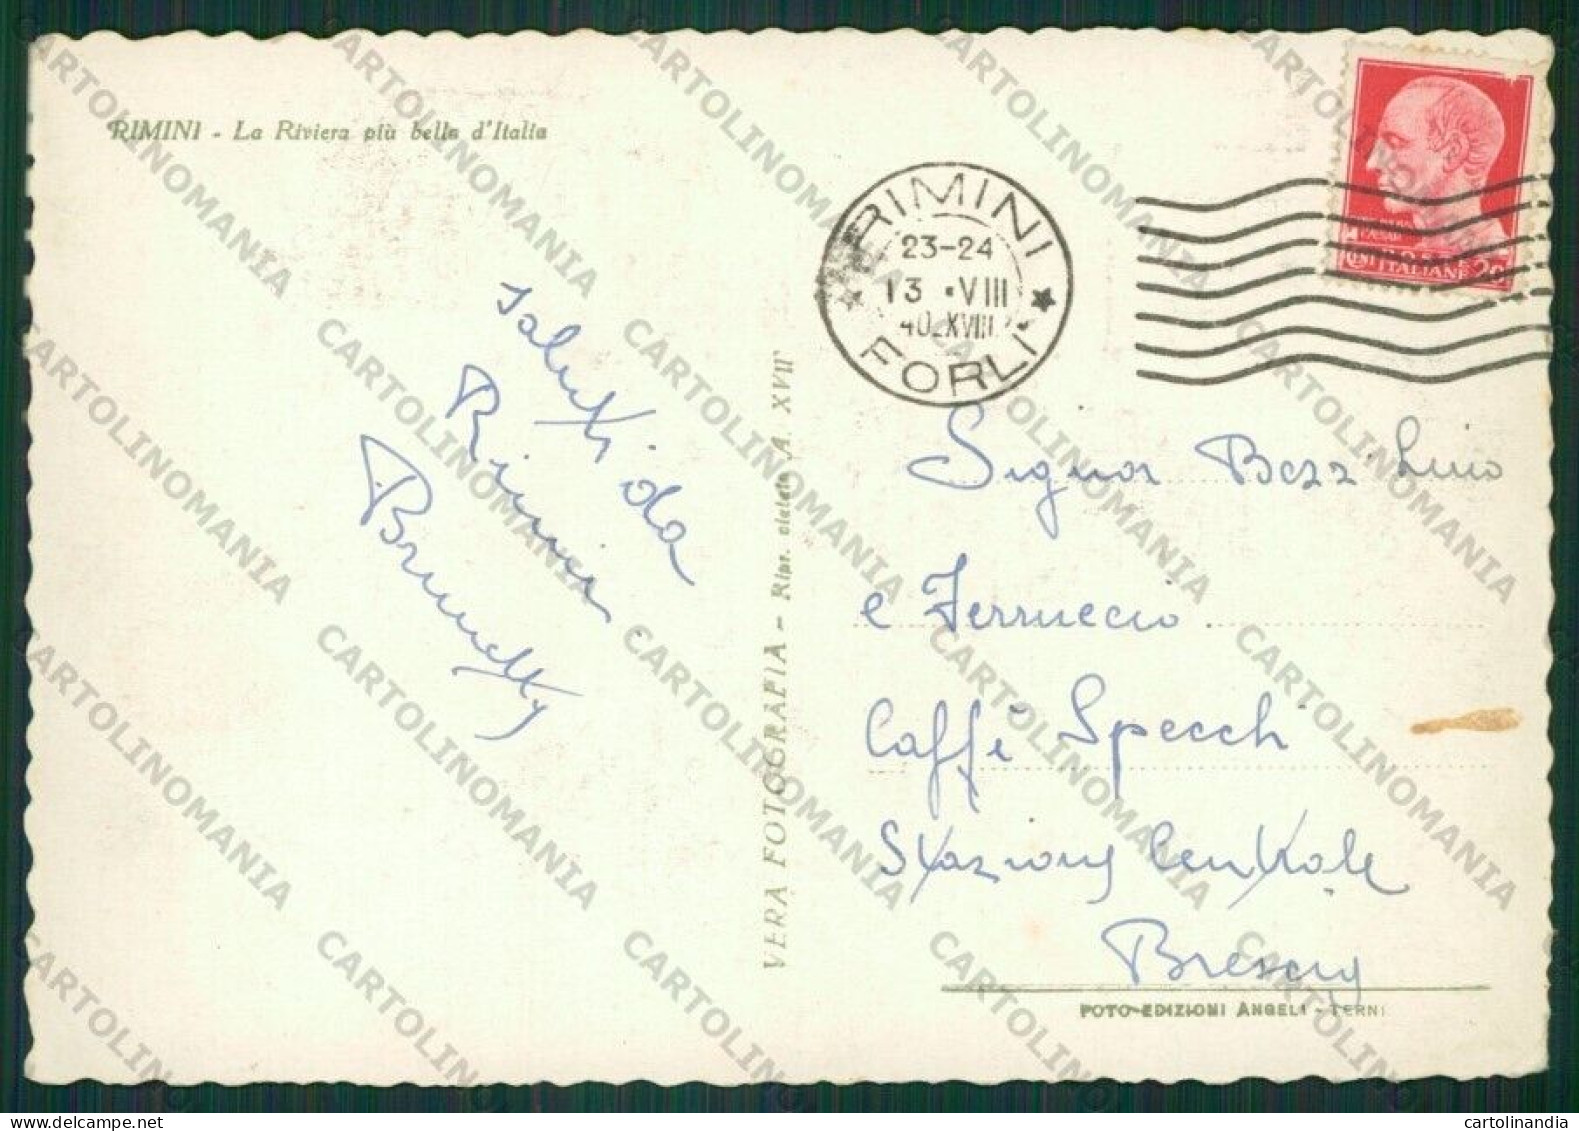 RIMINI - La Riviera più bella d'Italia
RIMINI
23-24
13 · VIII
40 XVIII
FORLI
POSTE ITALIANE 20
saluti da
Rimini
Brunetty
VERA FOTOGRAFIA - Ripr. vietata A. XVII
Signor Bozzi Lino
e Ferruccio
Caffè Specchi
Stazione Centrale
Brescia
FOTO-EDIZIONI ANGELI - TERNI
CARTOLINOMANIA
cartolinandia